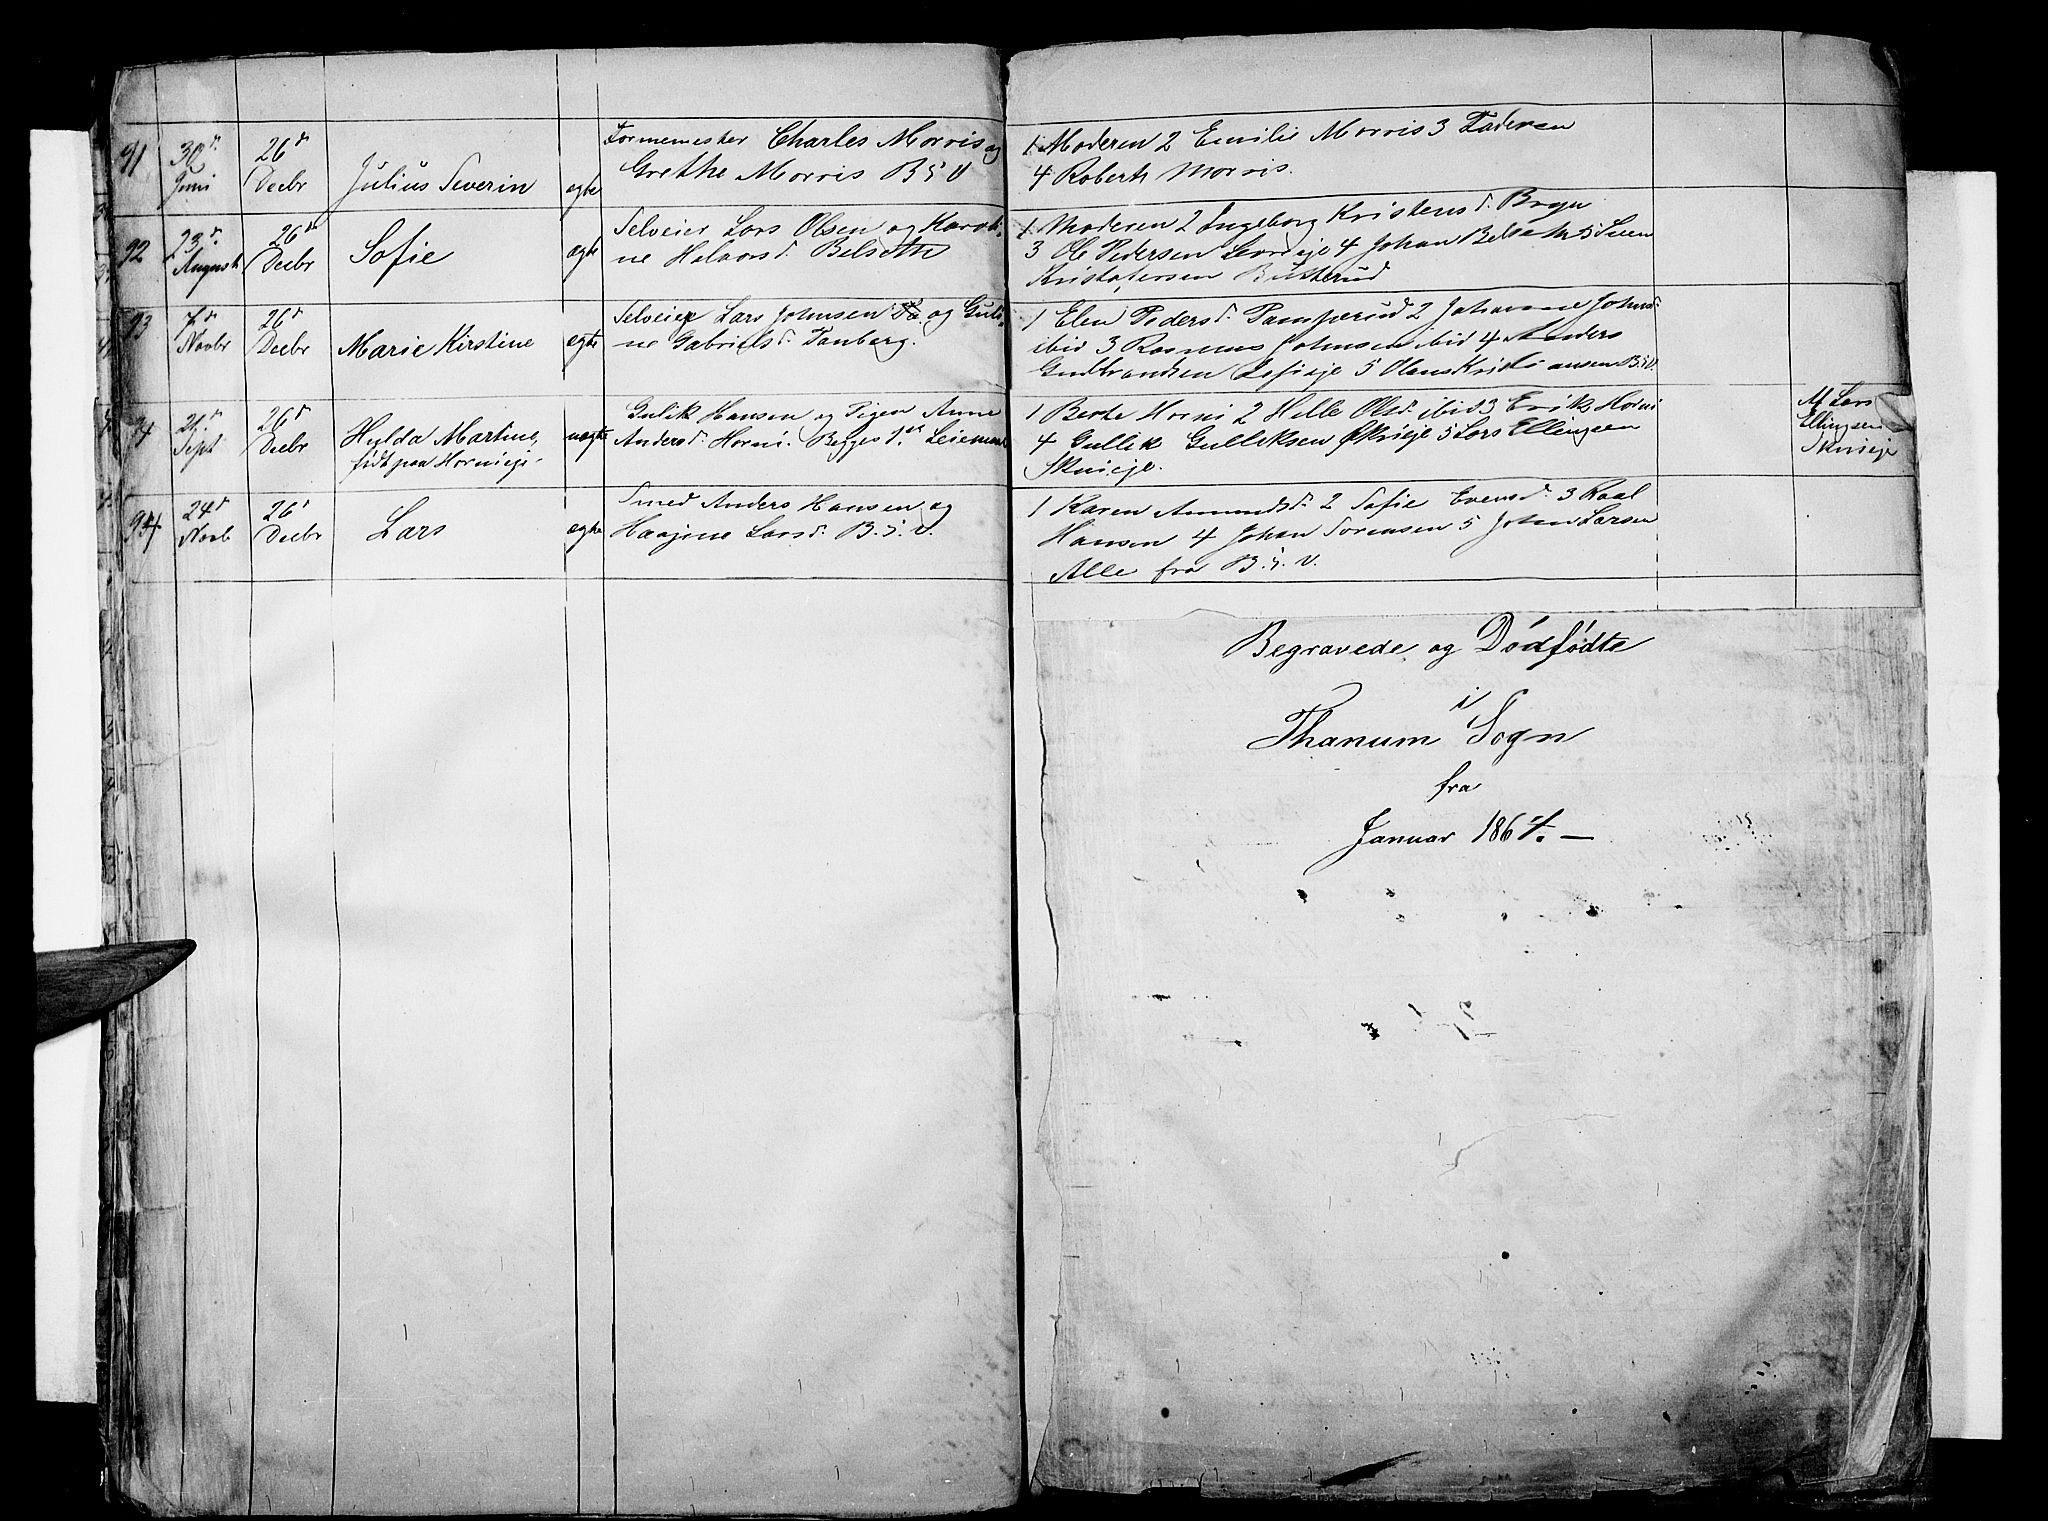 91 30te Juni 26d Decbr Julius Severin ægte Formemester Charles Morris og
Grethe Morris B. i V
1 Moderen 2 Emilie Morris 3 Faderen
4 Robert Morris.
92 23d August 26d Decbr Sofie ægte Selveier Lars Olsen og Karoli-
ne Halvorsd. Belseth
1 Moderen 2 Ingeborg Kristensd. Bryn
3 Ole Pedersen 4 Johan Belseth 5 Sven
Kristofersen Butterud
93 7d Novbr 26d Decbr Marie Kirstine ægte Selveier Lars Johnsen og Guli-
ne Gabrielsd. Tanberg.
1 Elen Pedersd. Pamperud 2 Johanne Johnsd.
ibid 3 Rasmus Johnsen ibid 4 Anders
Gudbrandsen 5 Olaus Kristiansen B. i V.
94 21d Sept 26d Decbr Hylda Martine, uægte
født paa Hornieje.
Gulik Hansen og Pigen Anne
Andersd. Horni. Begges 1ste Leiermaal
1 Berte Horni 2 Helle Olsd. ibid 3 Erik Horni
4 Gullik Gulliksen 5 Lars Ellingsen
Skuieje.
M Lars
Ellingsen
Skuieje
94 24d Novb 26d Decbr Lars ægte Smed Anders Hansen og
Haagine Larsd. B. i. V.
1 Karen Amundsd. 2 Sofie Evensd. 3 Roal
Hansen 4 Johan Sørensen 5 John Larsen
Alle fra B. i. V.
Begravede og Dødfødte
i
Thanum Sogn
fra
Januar 1864. —